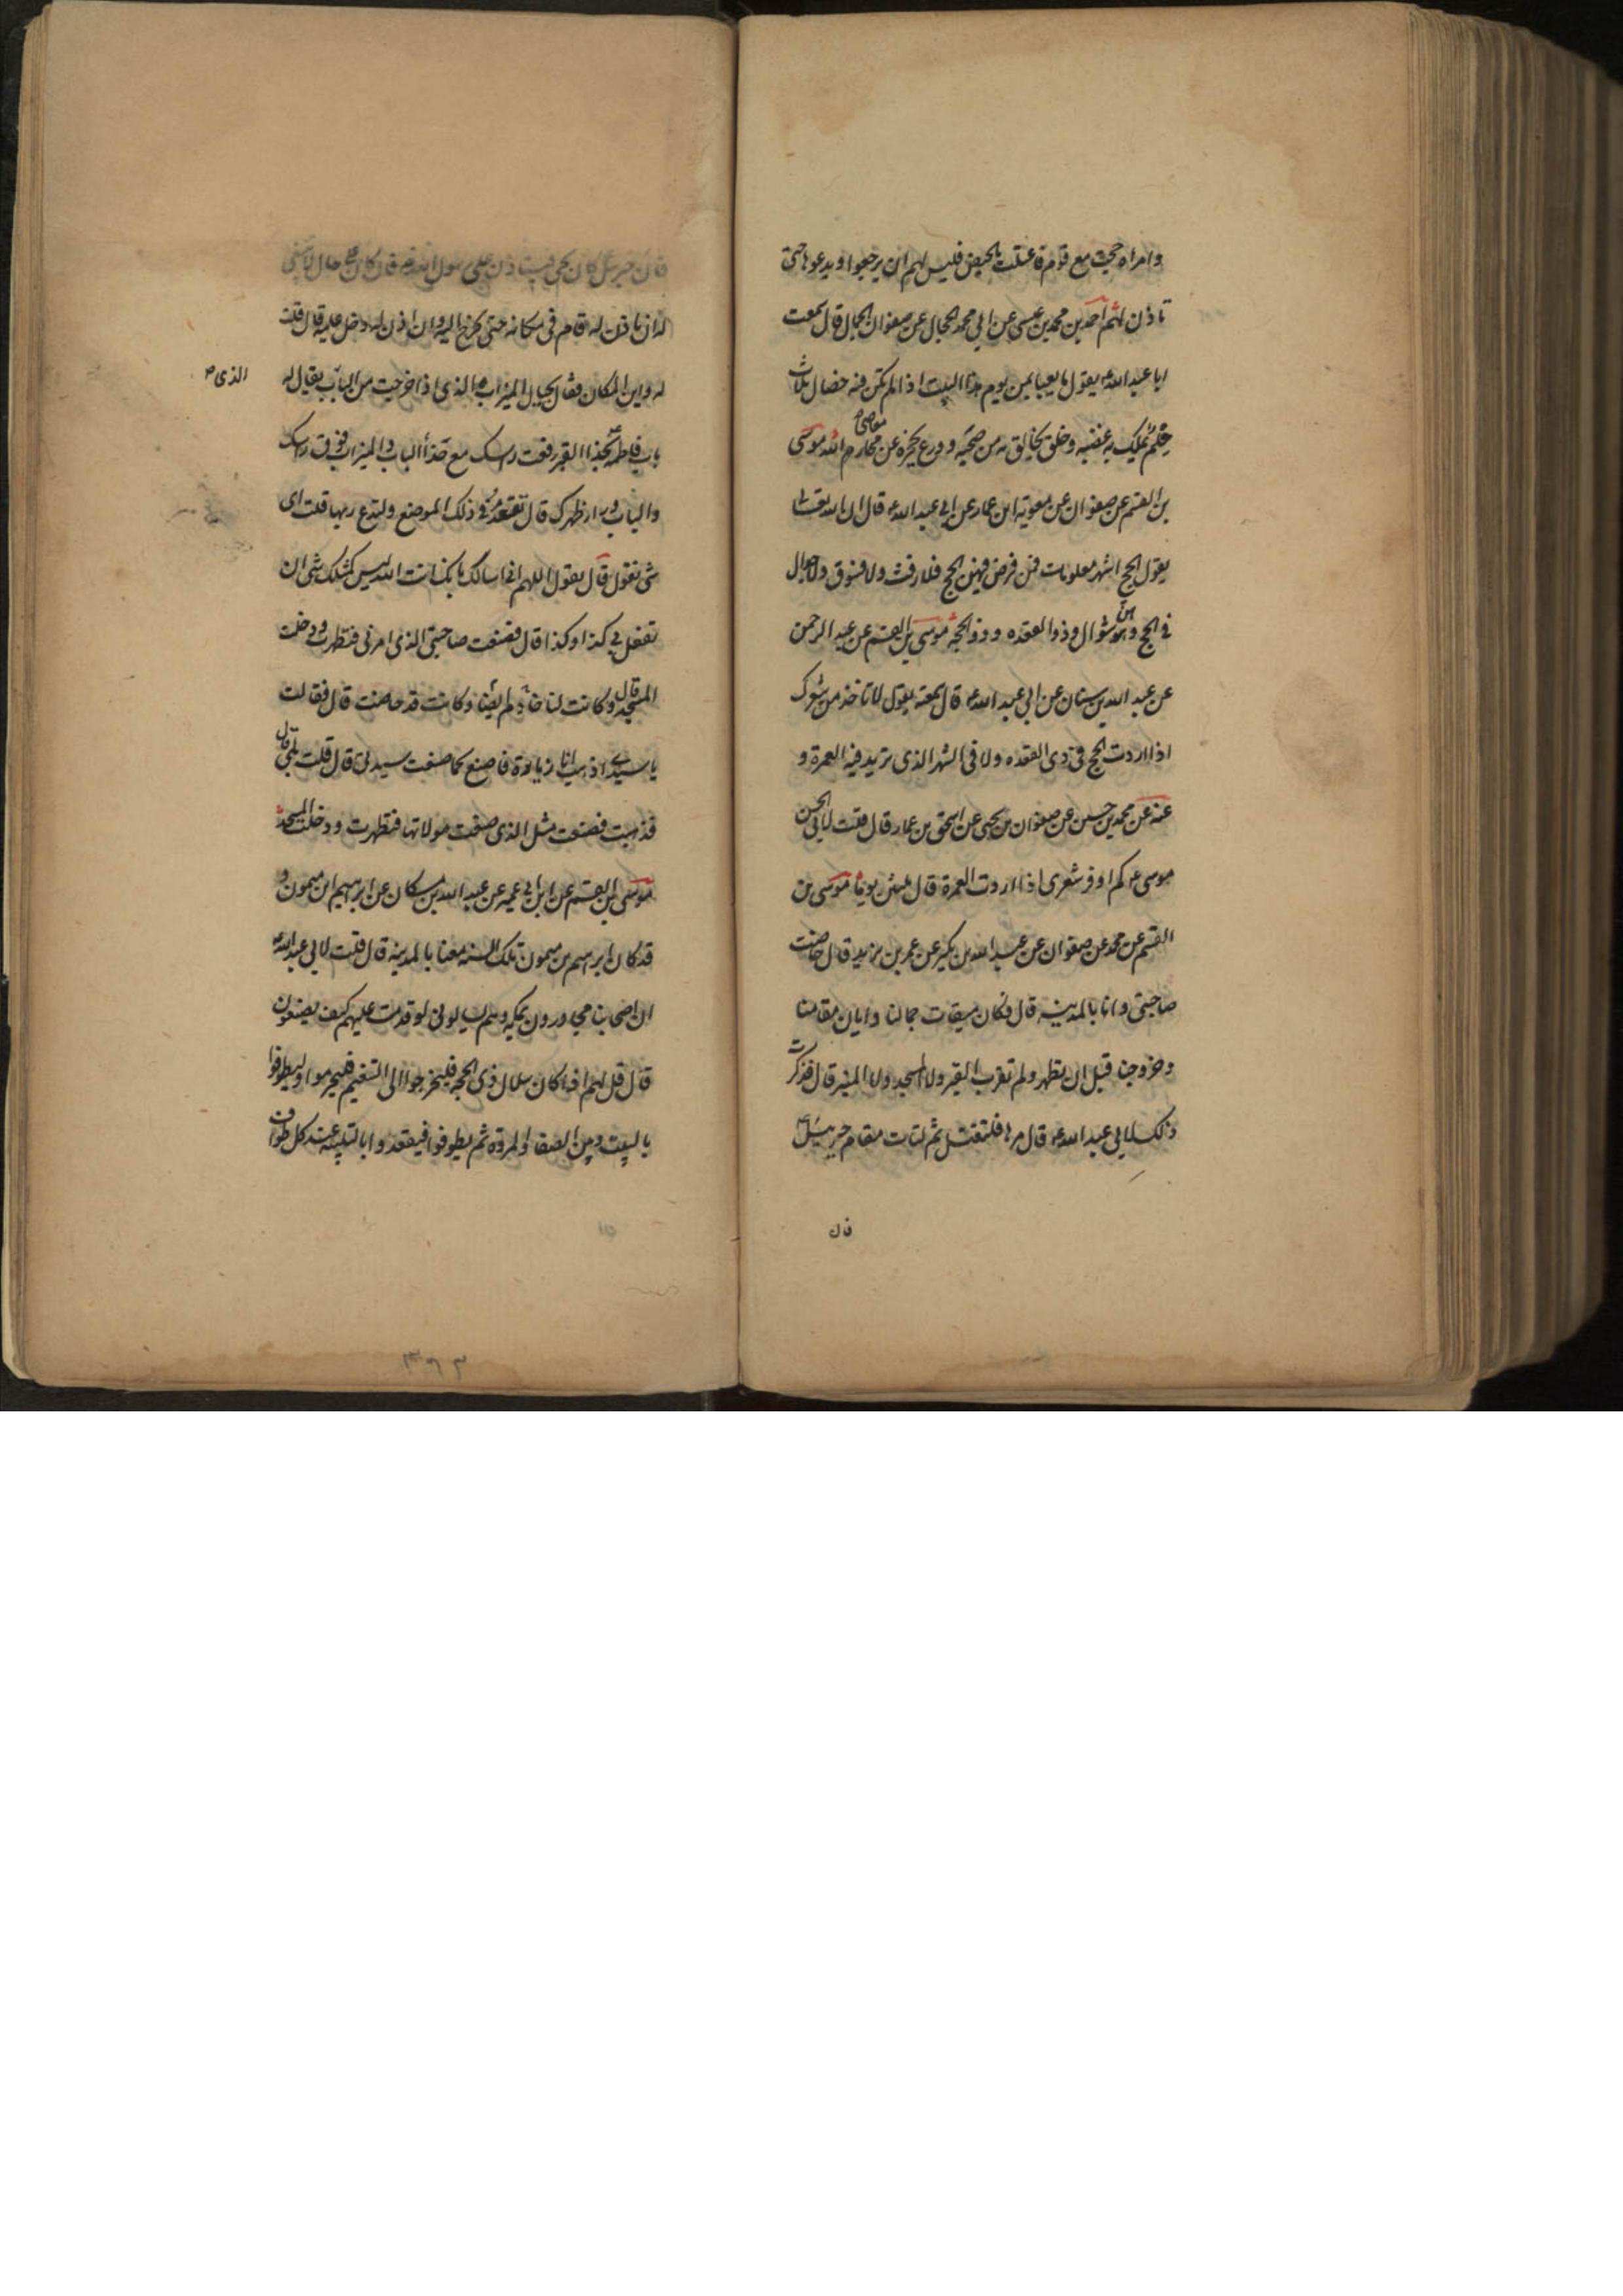 وامراة حجت مع قوم فاعتلت بالحيض فليس لهم ان يرجعوا ويدعوها حتى
تاذن لهم احمد بن محمد بن عيسى عن ابي محمد الحجال عن صفوان الجمال قال سمعت
ابا عبد الله ع يقول ما يعبا بمن يوم هذا البيت اذا لم تكن فيه خصال ثلاث
حلم يملك به غضبه وخلق يخالق به من صحبه وورع يحجزه عن محارم الله موسى
معاصى
بن القسم عن صفوان عن معوية ابن عمار عن ابي عبد الله ع قال ان الله تعالى
يقول الحج اشهر معلومات فمن فرض فيهن الحج فلا رفث ولا فسوق ولا جدال
في الحج وهن شوال وذو القعده وذو الحجه موسى بن القسم عن عبد الرحمن
عن عبد الله بن سنان عن ابي عبد الله ع قال سمعته يقول لا تاخذ من شعرك
اذا اردت الحج في ذى القعده ولا في الشهر الذى تريد فيه العمرة و
عنه عن محمد بن حسين عن صفوان بن يحيى عن اسحق بن عمار قال قلت لابي الحسن
موسى ع كم اوفر شعرى اذا اردت العمرة قال ثلثين يوما موسى بن
القسم عن محمد عن صفوان عن عبد الله بن بكير عن عمر بن يزيد قال حاضت
صاحبتى وانا بالمدينه قال وكان ميقات جمالنا وابان مقامنا
وخروجنا قبل ان تطهر ولم تقرب القبر ولا المسجد ولا المنبر قال فذكرت
ذلك لابي عبد الله ع قال مرها فلتغتسل ثم لتات مقام جبرئيل ع
فان
فان جبرئيل كان يجى فيستاذن على رسول الله ص فان كان على حال لا ينبغى
له ان ياذن له قام في مكانه حتى يخرج اليه وان اذن له دخل عليه قال قلت
له واين المكان فقال بحيال الميزاب الذى اذا خرجت من الباب يقال له
الذى ص
باب فاطمه ع بحذاء القبر رفعت راسك مع حذاء الباب والميزاب فوق راسك
والباب وراء ظهرك قال تقعد في ذلك الموضع ولتدع ربها قلت اى
شى تقول قال تقول اللهم انى اسالك بانك انت الله ليس كمثلك شى ان
تفعل بي كذا وكذا قال فصنعت صاحبتى الذى امرنى فتطهرت ودخلت
المسجد قال وكانت لنا خادم ايضا وكانت قد حاضت قال فقالت
يا سيدى اذهب انا زيادة فاصنع كما صنعت سيدتى قال قلت بلى قال
فذهبت فصنعت مثل الذى صنعت مولاتها فتطهرت ودخلت المسجد
موسى بن القسم عن ابن ابي عمير عن عبد الله بن مسكان عن ابرهيم ابن ميمون و
قد كان ابرهيم بن ميمون تلك السنه معنا بالمدينه قال قلت لابي عبد الله ع
ان اصحابنا مجاورون بمكه وهم يسالونى لو قدمت عليهم كيف يصنعون
قال قل لهم اذا كان هلال ذى الحجه فليخرجوا الى التنعيم فليحرموا وليطوفوا
بالبيت وبين الصفا والمروة ثم يطوفوا فيعقدوا بالتلبيه عند كل طواف
٣٦٣